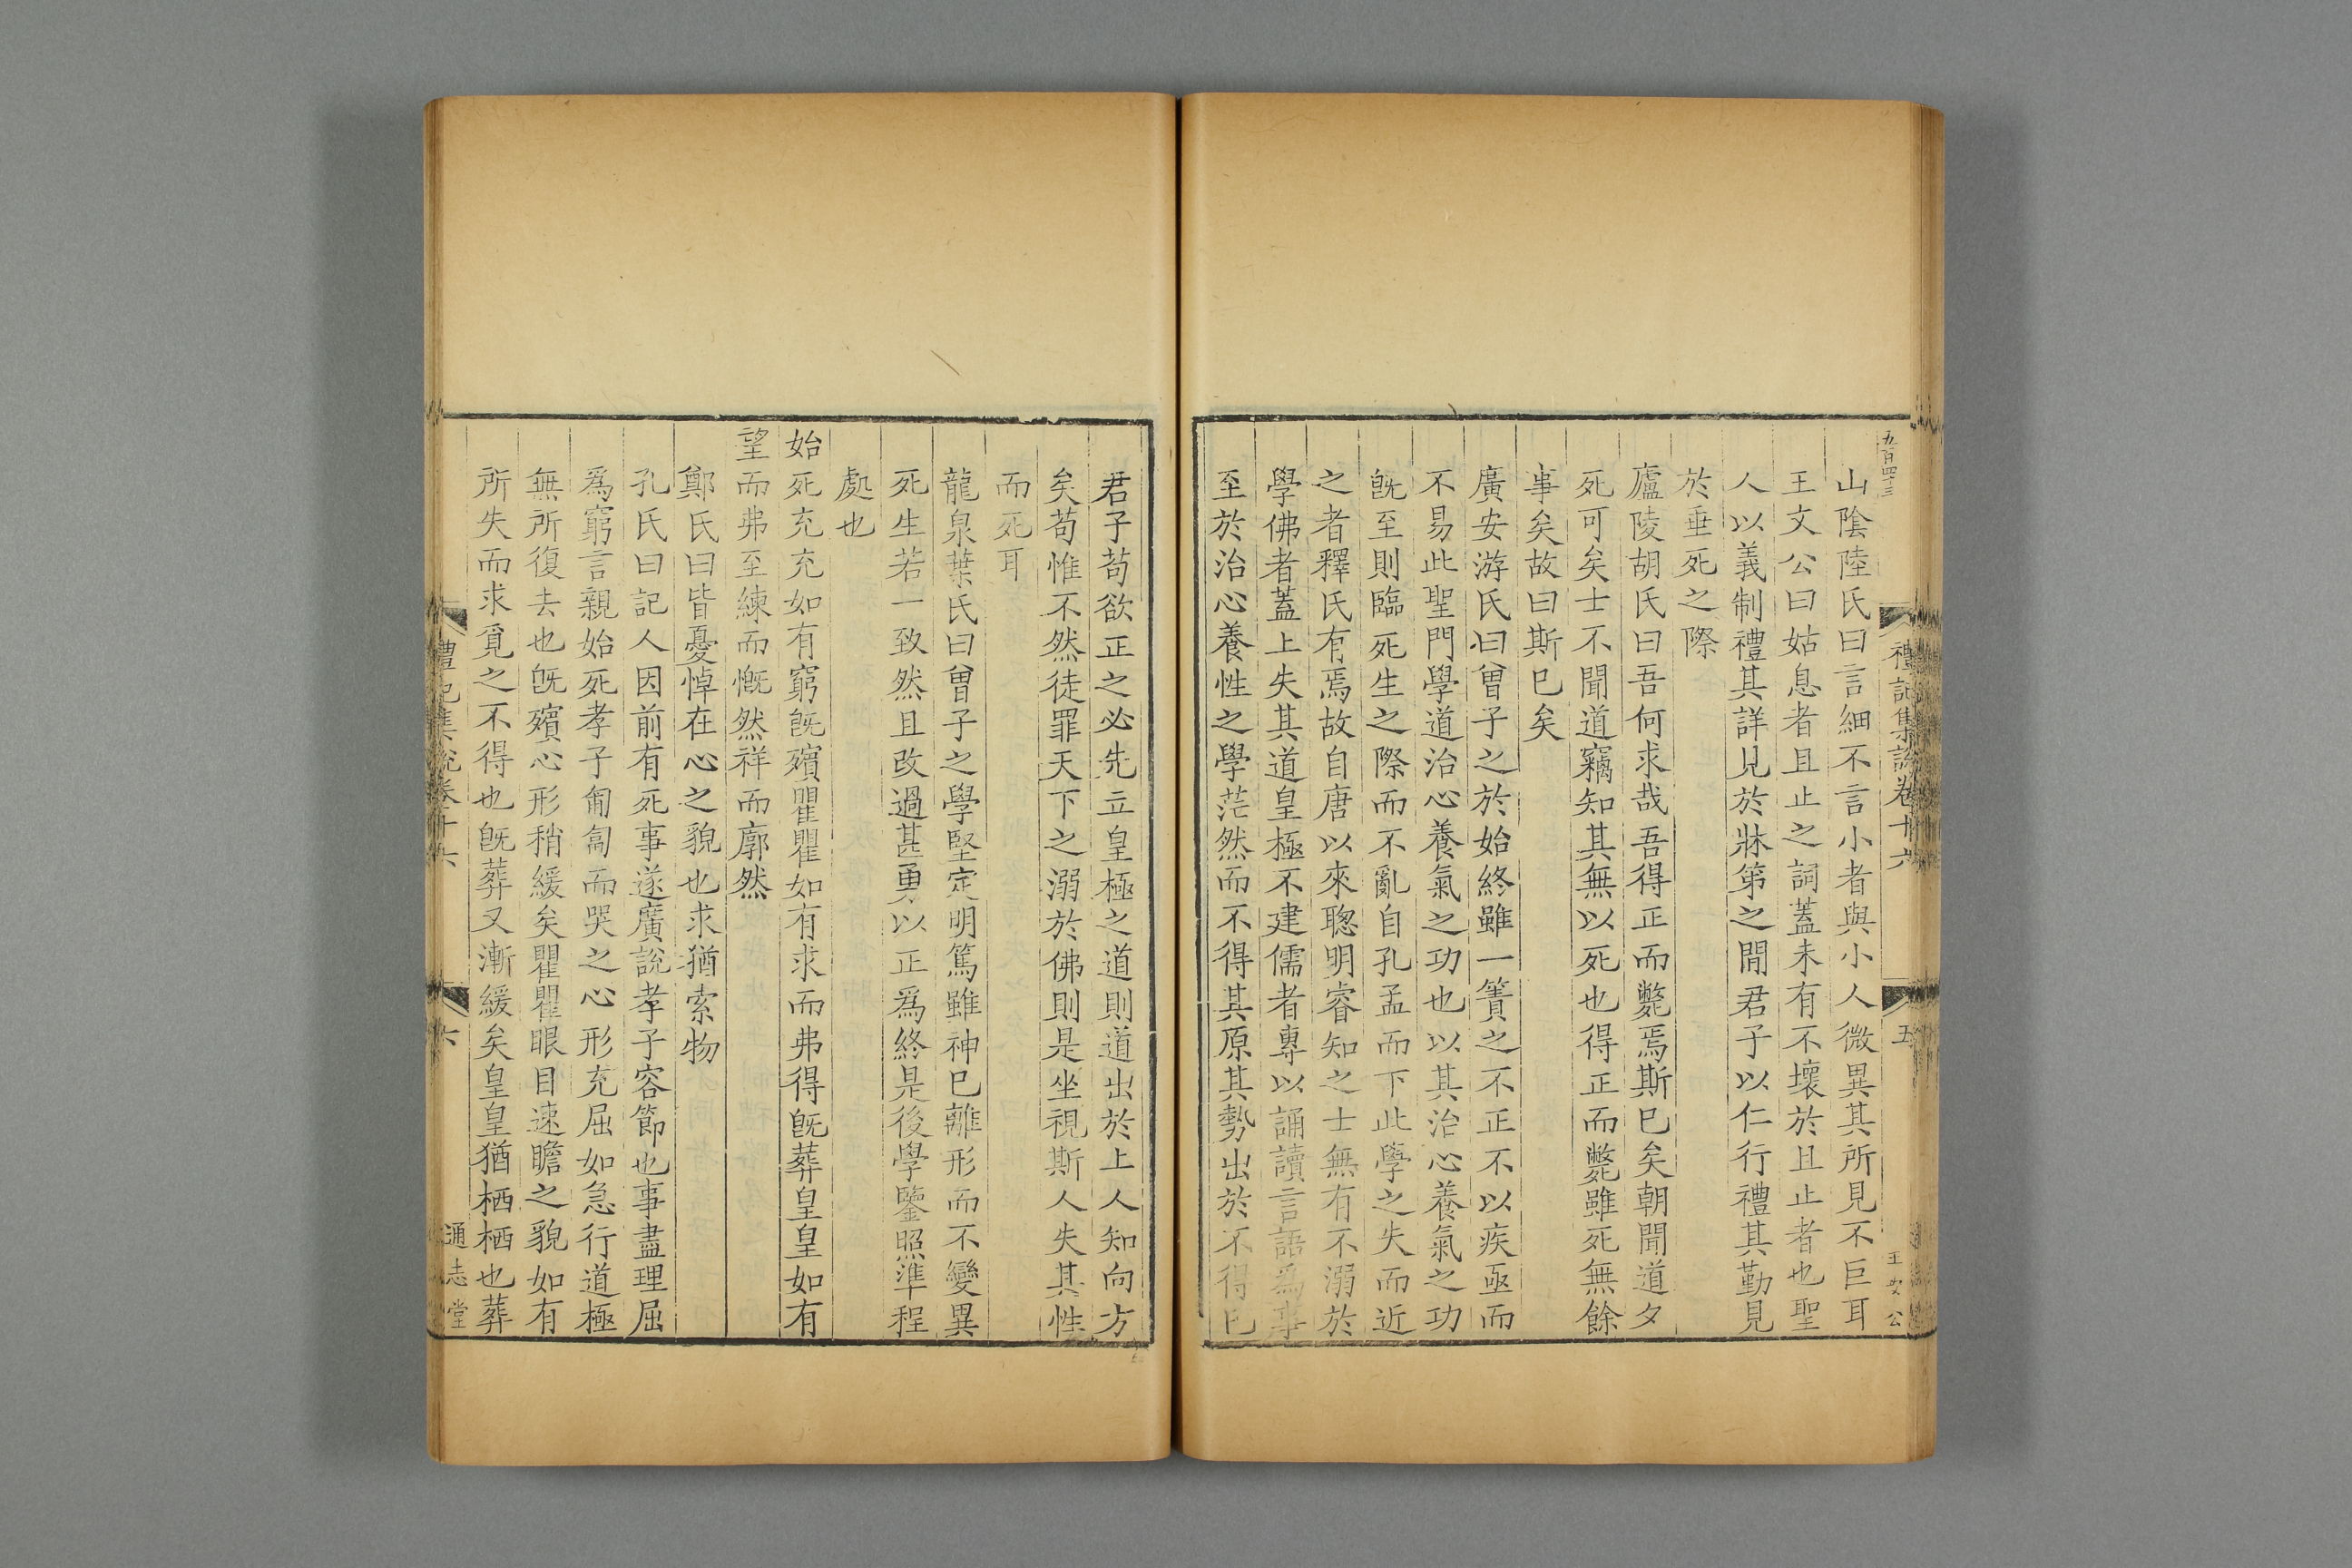 五百四十三
禮記集說卷十六
五
山陰陸氏曰言細不言小者與小人微異其所見不巨耳
王文公曰姑息者且止之詞蓋未有不壞於且止者也聖
人以義制禮其詳見於牀第之閒君子以仁行禮其勤見
於垂死之際
廬陵胡氏曰吾何求哉吾得正而斃焉斯巳矣朝聞道夕
死可矣士不聞道竊知其無以死也得正而斃雖死無餘
事矣故曰斯巳矣
廣安游氏曰曾子之於始終雖一簀之不正不以疾亟而
不易此聖門學道治心養氣之功也以其治心養氣之功
旣至則臨死生之際而不亂自孔孟而下此學之失而近
之者釋氏有焉故自唐以來聰明睿知之士無有不溺於
學佛者蓋上失其道皇極不建儒者專以誦讀言語爲事
至於治心養性之學茫然而不得其原其勢出於不得巳
君子苟欲正之必先立皇極之道則道出於上人知向方
矣苟惟不然徒罪天下之溺於佛則是坐視斯人失其性
而死耳
龍泉葉氏曰曾子之學堅定明篤雖神巳離形而不變異
死生若一致然且改過甚勇以正爲終是後學鑒照準程
處也
始死充充如有窮旣殯瞿瞿如有求而弗得旣葬皇皇如有
望而弗至練而慨然祥而廓然
鄭氏曰皆憂悼在心之貌也求猶索物
孔氏曰記人因前有死事遂廣說孝子容節也事盡理屈
爲窮言親始死孝子匍匐而哭之心形充屈如急行道極
無所復去也旣殯心形稍緩矣瞿瞿眼目速瞻之貌如有
所失而求覓之不得也旣葬又漸緩矣皇皇猶栖栖也葬
禮記集說卷十六
六
通志堂